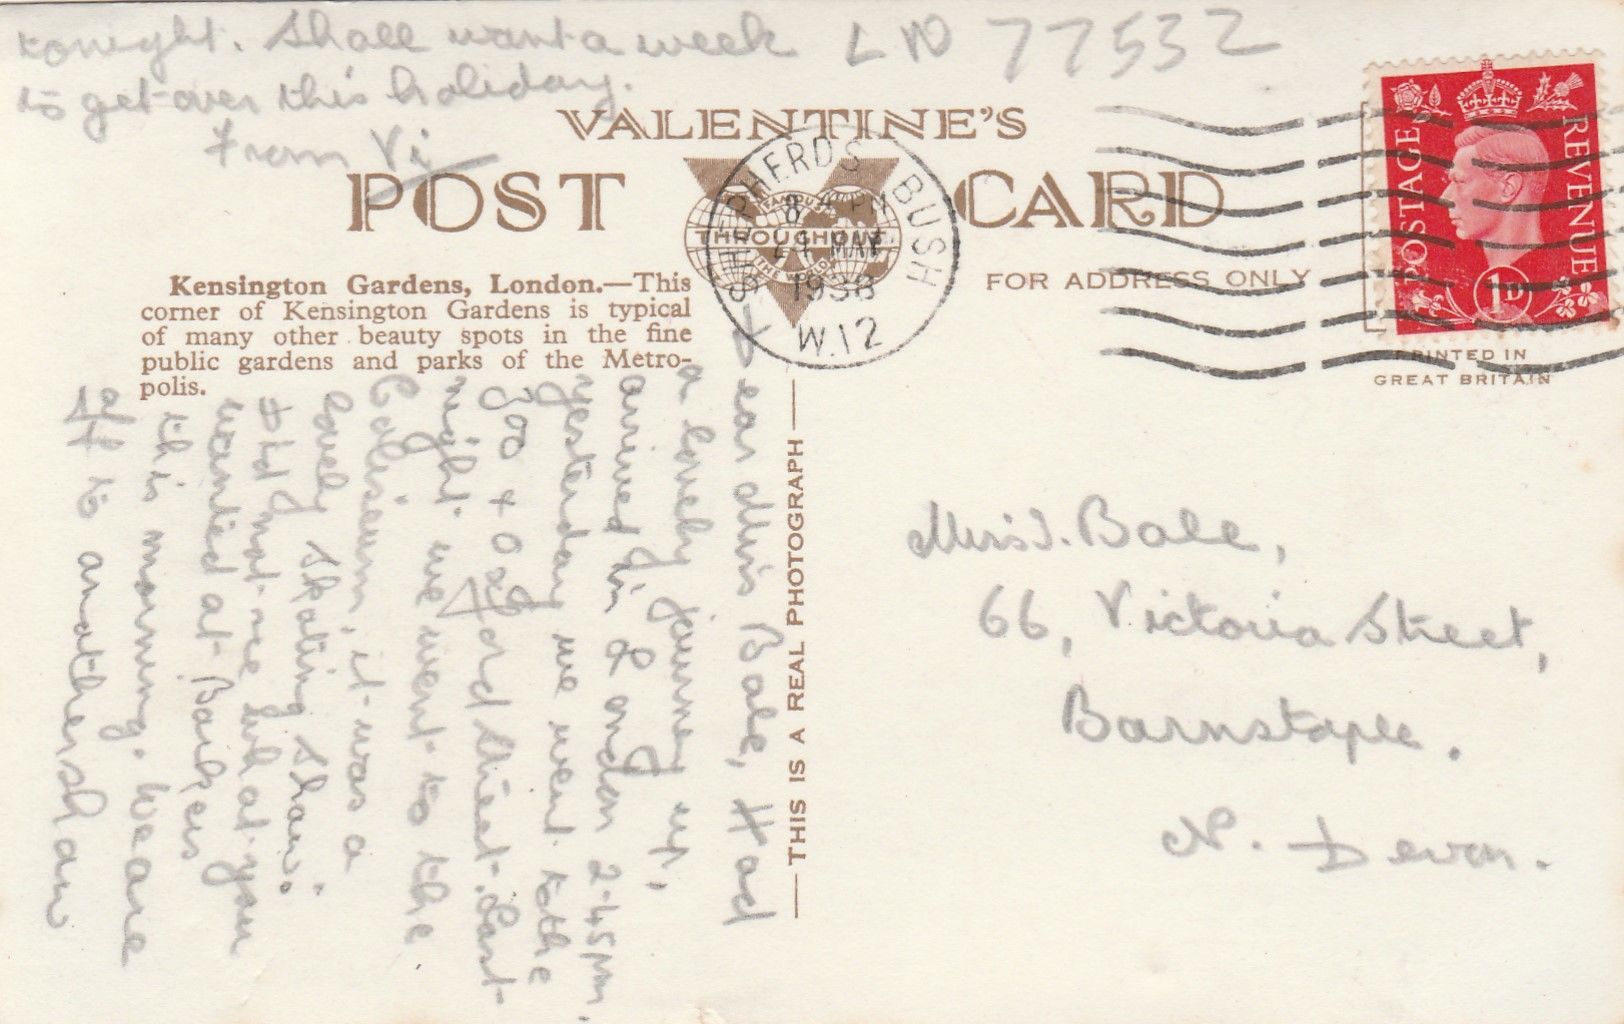 VALENTINE'S
POST CARD
FAMOUS
THROUGHOUT
THE WORLD
SHEPHERDS BUSH
8 PM
24 MAY
1938
W.12
POSTAGE REVENUE
1D
Kensington Gardens, London.—This
corner of Kensington Gardens is typical
of many other beauty spots in the fine
public gardens and parks of the Metro-
polis.
FOR ADDRESS ONLY
PRINTED IN
GREAT BRITAIN
— THIS IS A REAL PHOTOGRAPH —
Dear Miss Bale, Had
a lovely journey up,
arrived in London 2-45 pm.
yesterday we went to the
Zoo & Oxford Street. Last
night we went to the
Coliseum, it was a
lovely skating show.
& Ld not see what you
wanted at Barkers
this morning. We are
off to another show
tonight. Shall want a week
to get over this holiday.
From Vi
LN 77532
Miss J. Bale,
66, Victoria Street,
Barnstaple.
N. Devon.